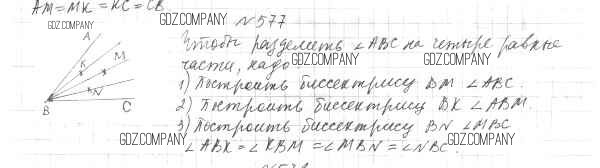 AM = MK = KC = CB
GDZ.COMPANY
GDZ.COMPANY
N577
A
M
K
N
B
C
Чтобы разделить ∠ABC на четыре равные
части, надо:
GDZ.COMPANY
GDZ.COMPANY
1) Построить биссектрису BM ∠ABC.
2) Построить биссектрису BK ∠ABM.
3) Построить биссектрису BN ∠MBC
GDZ.COMPANY
GDZ.COMPANY
∠ABK = ∠KBM = ∠MBN = ∠NBC.